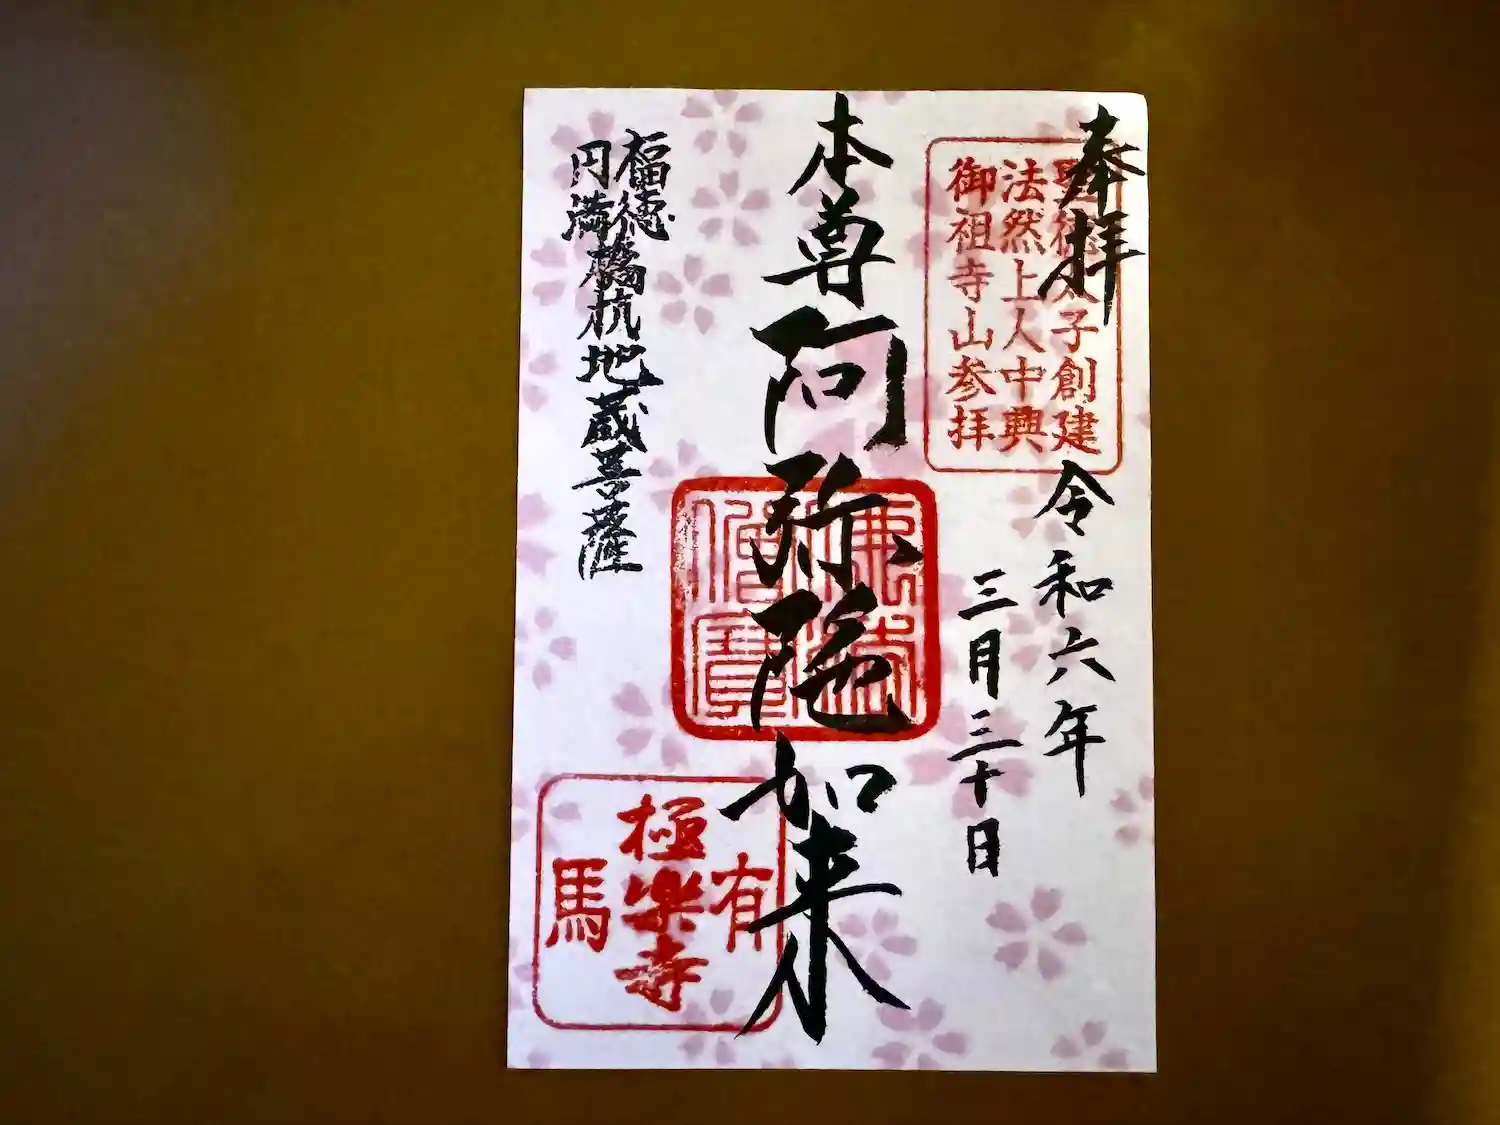 奉拝
聖徳太子創建
法然上人中興
御祖寺山参拝
令和六年
三月三十日
本尊阿弥陀如来
福徳
円満
橋杭地蔵菩薩
有馬
極楽寺